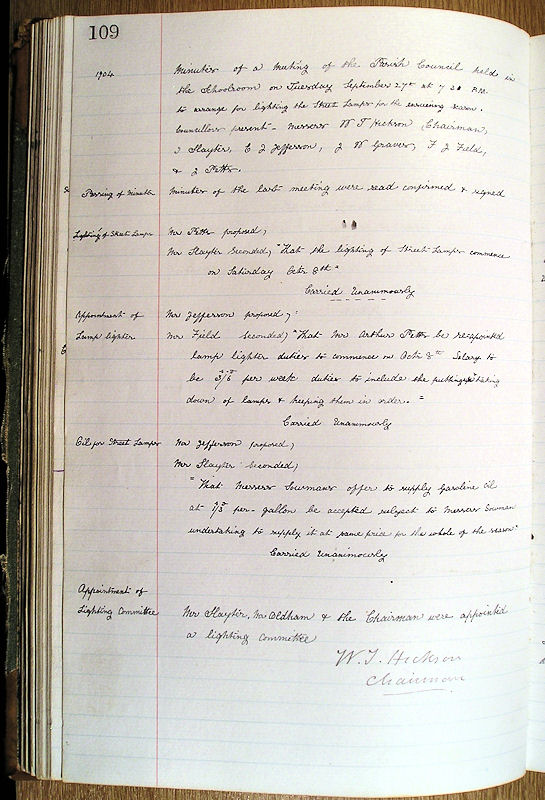 109
1904
Minutes of a Meeting of the Parish Council held in
the Schoolroom on Tuesday September 27th at 7.30 P.M.
to arrange for lighting the Street Lamps for the ensuing season.
Councillors present - Messrs W T Hickson Chairman,
J Slayter, E J Jefferson, J W Graves, F J Field,
& J Petts.
Passing of Minutes
Minutes of the last meeting were read confirmed & signed
Lighting of Street Lamps
Mr Petts proposed,
Mr Slayter Seconded, "That the lighting of Street Lamps commence
on Saturday Octr 8th"
Carried Unanimously
Appointment of
Lamp lighter
Mr Jefferson proposed,
Mr Field Seconded, "That Mr Arthur Petts be re-appointed
lamp lighter duties to commence on Octr 8th Salary to
be per week duties to include the putting up & taking
down of lamps & keeping them in order."
Carried Unanimously
Oil for Street Lamps
Mr Jefferson proposed,
Mr Slayter Seconded,
"That Messrs Sowmans offer to supply Gasoline Oil
at per gallon be accepted subject to Messrs Sowman
undertaking to supply it at same price for the whole of the season"
Carried Unanimously
Appointment of
Lighting Committee
Mr Slayter, Mr Oldham & the Chairman were appointed
a lighting committee
W. T. Hickson
Chairman